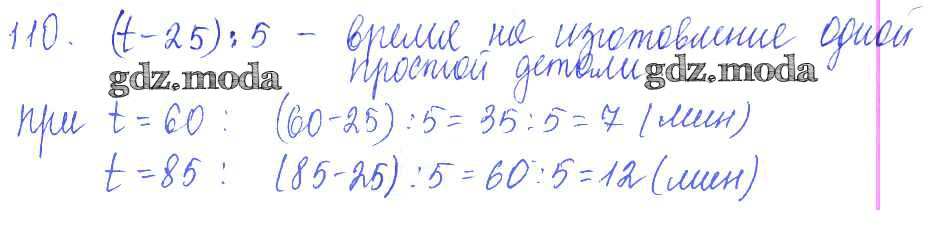 110. (t-25):5 - время на изготовление одной
простой детали
gdz.moda gdz.moda
при t=60: (60-25):5=35:5=7 (мин)
t=85: (85-25):5=60:5=12 (мин)